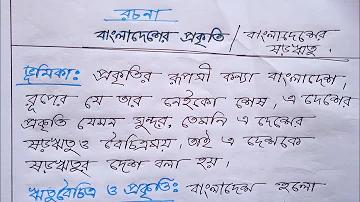 রচনা
বাংলাদেশের প্রকৃতি / বাংলাদেশের ষড়ঋতু।
ভূমিকা: প্রকৃতির রূপসী কন্যা বাংলাদেশ,
রূপের যে তার নেইকো শেষ, এ দেশের
প্রকৃতি যেমন সুন্দর, তেমনি এ দেশের
ষড়ঋতুও বৈচিত্র্যময়, তাই এ দেশকে
ষড়ঋতুর দেশ বলা হয়।
ঋতুবৈচিত্র ও প্রকৃতি: বাংলাদেশ হলো